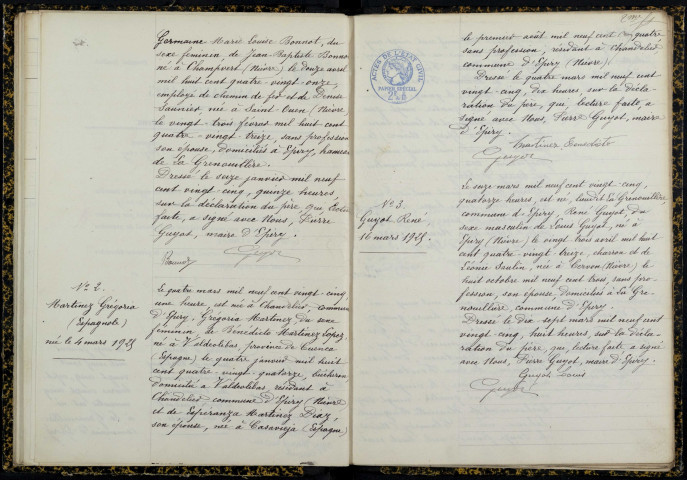 Germaine Marie Louise Bonnot, du
sexe féminin, de Jean-Baptiste Bonnot
né à Champvert (Nièvre) le douze avril
mil huit cent quatre vingt onze,
employé de chemin de fer et de Denise
Saunier, née à Saint Ouen (Nièvre
le vingt-trois février mil huit cent
quatre-vingt-treize, sans profession
son épouse, domiciliés à Epiry, hameau
de La Grenouillère.
Dressé le seize janvier mil neuf
cent vingt cinq, quinze heures,
sur la déclaration du père, qui, lecture
faite, a signé avec Nous, Pierre
Guyot, maire d'Epiry.
Bonnot
Guyot
No 2.
Martinez Grégoria
(Espagnole)
née le 4 mars 1925
Le quatre mars mil neuf cent vingt-cinq
une heure, est née à Chandelier, commune
d'Epiry, Grégoria Martinez du sexe
féminin, de Bénédicto Martinez Lopez
né à Valdeolibas, province de Cuenca
(Espagne) le quatre janvier mil huit
cent quatre-vingt-quatorze, bûcheron
domicilié à Valdeolibas, résidant à
Chandelier commune d'Epiry (Nièvre
et de Espéranza Martinez Diaz,
son épouse, née à Casavieja (Espagne)
ACTES DE L'ETAT CIVIL
PAPIER SPECIAL
le premier août mil neuf cent quatre,
sans profession, résidant à Chandelier
commune d'Epiry (Nièvre).
Dressé le quatre mars mil neuf cent
vingt-cinq, dix heures, sur la décla-
ration du père, qui, lecture faite, a
signé avec Nous, Pierre Guyot, maire
d'Epiry.
Martinez Benedicto
Guyot
No 3.
Guyot René
16 mars 1925.
Le seize mars mil neuf cent vingt-cinq
quatorze heures, est né, lieudit La Grenouillère,
commune d'Epiry, René Guyot, du
sexe masculin de Louis Guyot, né à
Epiry (Nièvre) le vingt trois avril mil huit
cent quatre-vingt-treize, charron et de
Léonie Saulin, née à Cervon (Nièvre) le
huit octobre mil neuf cent trois, sans pro-
fession, son épouse, domiciliés à La Gre-
nouillère, commune d'Epiry.
Dressé le dix-sept mars mil neuf cent
vingt-cinq, huit heures, sur la décla-
ration du père, qui, lecture faite, a signé
avec Nous, Pierre Guyot, maire d'Epiry.
Guyot Louis
Guyot